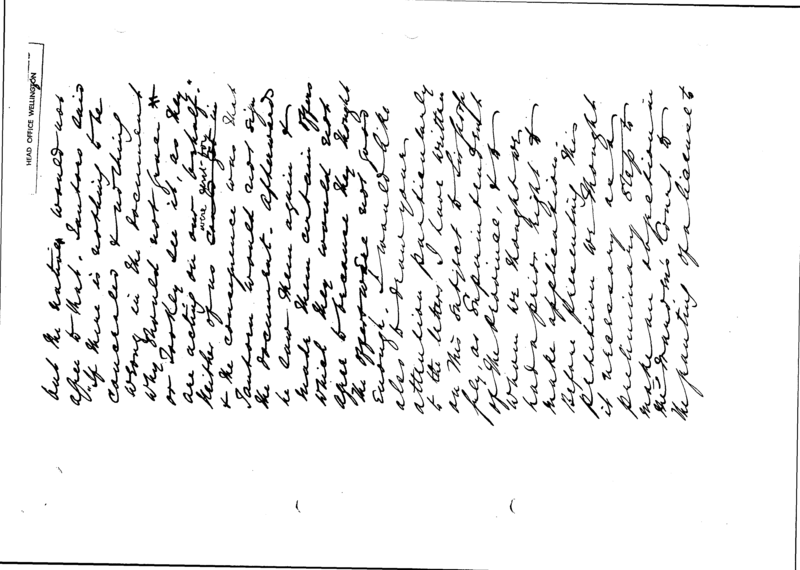 HEAD OFFICE WELLINGTON
but the natives would not
agree to that. Santons said
"If there is nothing to be
concealed & nothing
wrong in the document
why should not Grace
or Lockes see it, as they
are acting on our behalf."
Neither of us were got in
& the consequence was that
would not sign
the document. Afterwards
he saw them again &
made them certain offers
which they would not
agree to because they thought
the offers were not good
enough. I would like
also to draw your
attention particularly
to the letters I have written
on this subject to
as Superintendent
of the Province, & to
whom we thought we
had a prior right to
make application.
Before presenting this
petition we thought
it necessary as a
preliminary step to
make an objection in
the Land Court to
the granting of a license to